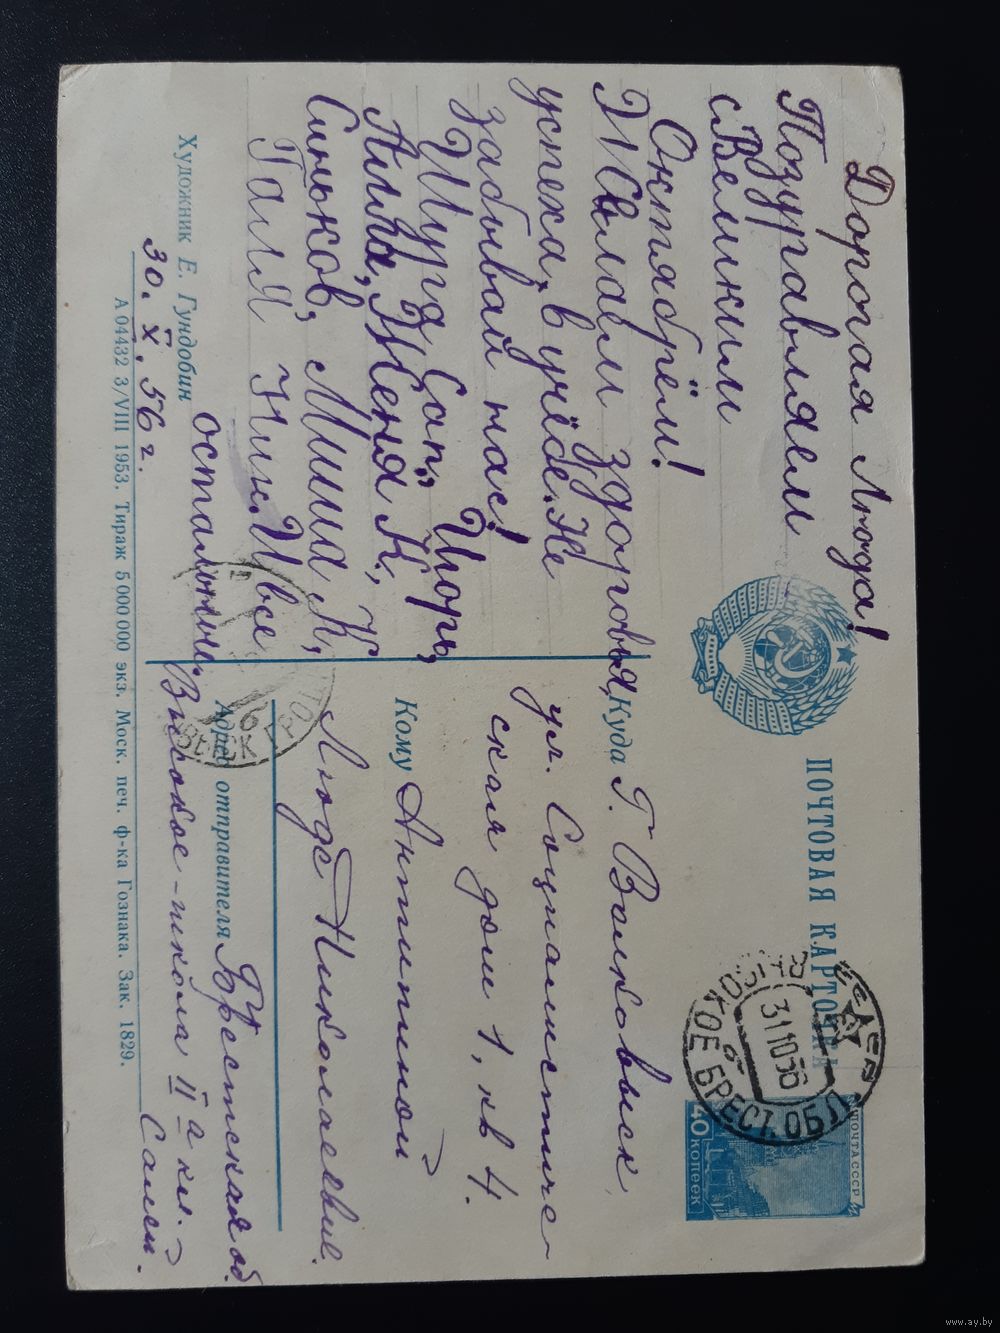 Дорогая Люда!
Поздравляем
с Великим
Октябрём!
Желаем здоровья,
успеха, в учёбе. Не
забывай нас!
Шура Сап., Игорь,
Алла, Женя К., К
Синьков, Миша, К,
Галя Ник. И все
остальные.
Художник Е. Гундобин
30. X. 56 г.
А 04432 3/VIII 1953. Тираж 5 000 000 экз. Моск. печ. ф-ка Гознака. Зак. 1829.
ПОЧТОВАЯ КАРТОЧКА
ВЫСОКОЕ БРЕСТ. ОБЛ.
31 10 56
ПОЧТА СССР
40
КОПЕЕК
Куда Г. Волковыск
ул. Социалистиче-
ская дом 1, кв 4.
Кому Антипиной
Люде Николаевне.
Адрес отправителя Брестская об.
Высокое-школа II а кл.